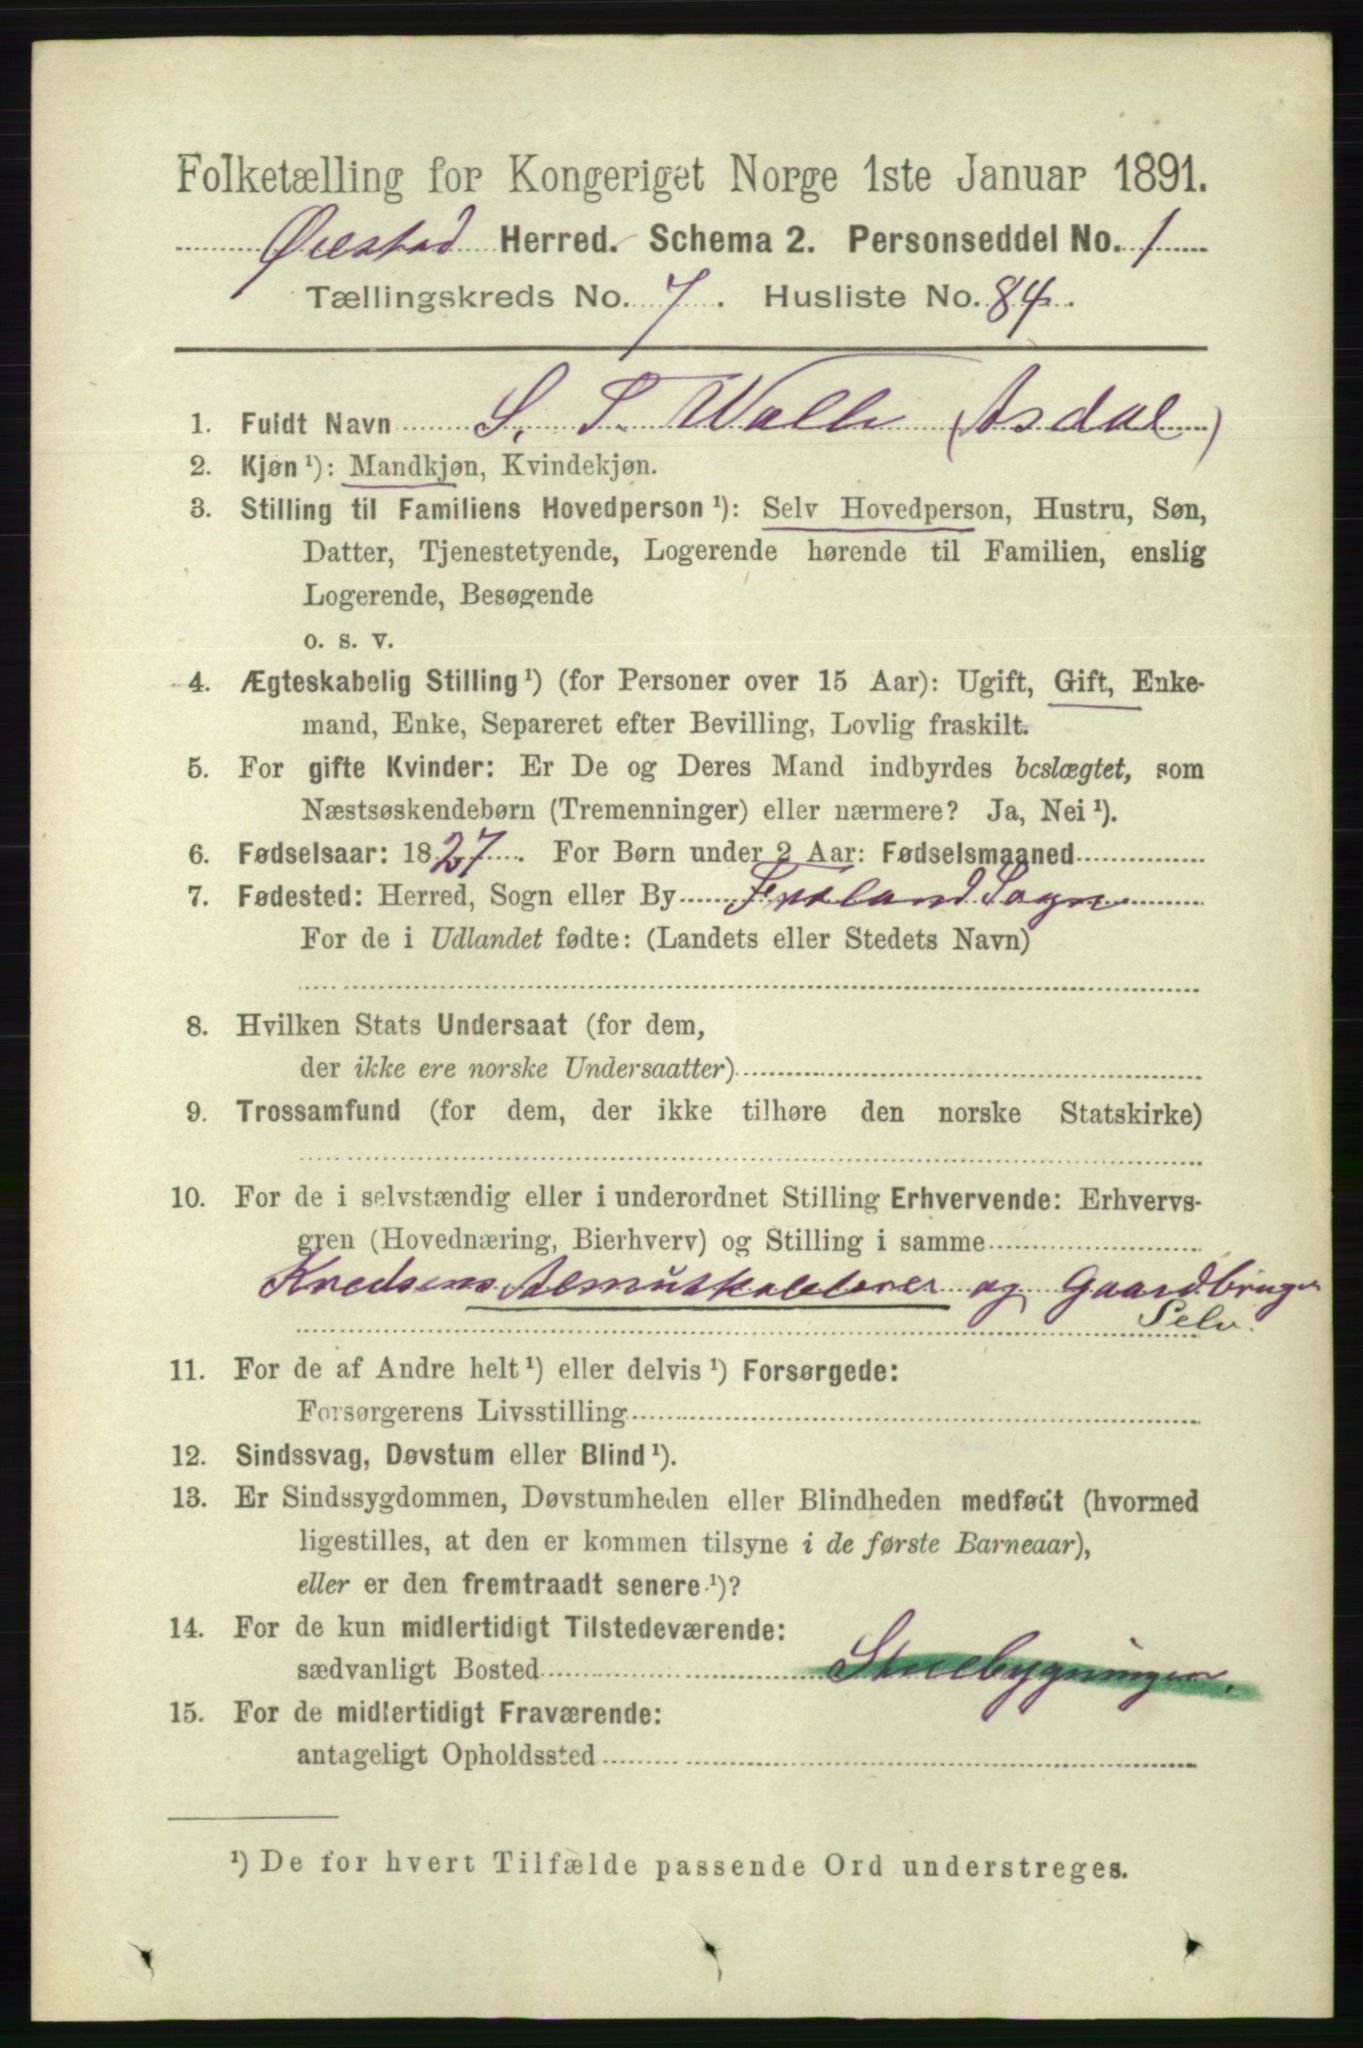 Folketælling for Kongeriget Norge 1ste Januar 1891.
Øiestad Herred. Schema 2. Personseddel No. 1
Tællingskreds No. 7. Husliste No. 84.
1. Fuldt Navn S. S. Walle (Asdal)
2. Kjøn ¹): Mandkjøn, Kvindekjøn.
3. Stilling til Familiens Hovedperson ¹): Selv Hovedperson, Hustru, Søn,
Datter, Tjenestetyende, Logerende hørende til Familien, enslig
Logerende, Besøgende
o. s. v.
4. Ægteskabelig Stilling ¹) (for Personer over 15 Aar): Ugift, Gift, Enke-
mand, Enke, Separeret efter Bevilling, Lovlig fraskilt.
5. For gifte Kvinder: Er De og Deres Mand indbyrdes beslægtet, som
Næstsøskendebørn (Tremenninger) eller nærmere? Ja, Nei ¹).
6. Fødselsaar: 1827. For Børn under 2 Aar: Fødselsmaaned
7. Fødested: Herred, Sogn eller By Froland Sogn
For de i Udlandet fødte: (Landets eller Stedets Navn)
8. Hvilken Stats Undersaat (for dem,
der ikke ere norske Undersaatter)
9. Trossamfund (for dem, der ikke tilhøre den norske Statskirke)
10. For de i selvstændig eller i underordnet Stilling Erhvervende: Erhvervs-
gren (Hovednæring, Bierhverv) og Stilling i samme
Kredsens Almuskolelærer og Gaardbruger
Selv.
11. For de af Andre helt ¹) eller delvis ¹) Forsørgede:
Forsørgerens Livsstilling
12. Sindssvag, Døvstum eller Blind ¹).
13. Er Sindssygdommen, Døvstumheden eller Blindheden medfødt (hvormed
ligestilles, at den er kommen tilsyne i de første Barneaar),
eller er den fremtraadt senere ¹)?
14. For de kun midlertidigt Tilstedeværende:
sædvanligt Bosted Stuebygningen.
15. For de midlertidigt Fraværende:
antageligt Opholdssted
¹) De for hvert Tilfælde passende Ord understreges.